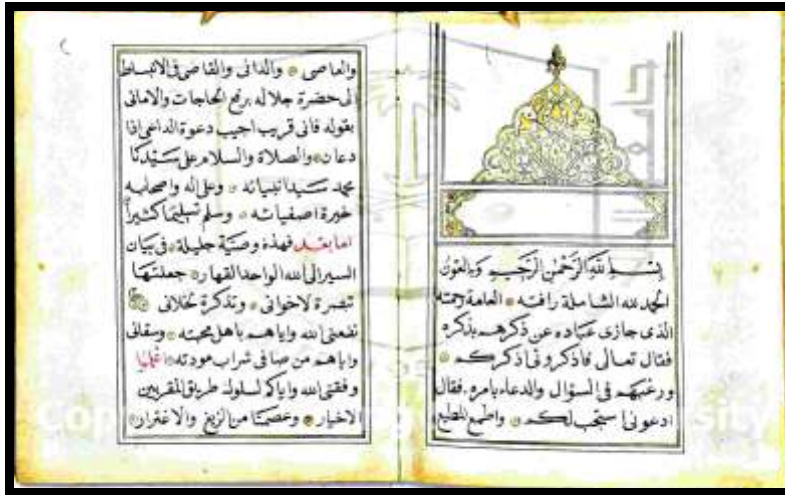 بسم الله الرحمن الرحيم وبه العون
الحمد لله الشاملة رافته العامة رحمته
الذى جازى عباده عن ذكرهم بذكره
فقال تعالى فاذكرونى اذكركم
ورغبهم فى السؤال والدعاء بامره فقال
ادعونى استجب لكم واطمع المطيع
والعاصى والدانى والقاصى فى الانبساط
الى حضرة جلاله برفع الحاجات والامانى
بقوله فانى قريب اجيب دعوة الداعى اذا
دعان والصلاة والسلام على سيدنا
محمد سيد انبيائه وعلى اله واصحابه
خيرة اصفيائه وسلم تسليما كثيرا
اما بعد فهذه وصية جليلة فى بيان
السير الى الله الواحد القهار جعلتها
تبصرة لاخوانى وتذكرة لخلانى
نفعنى الله واياهم باهل محبته وسقانى
واياهم من صافى شراب مودته اعلم
وفقنى الله واياكم لسلوك طريق المقربين
الاخيار وعصمنا من الزيغ والاغترار